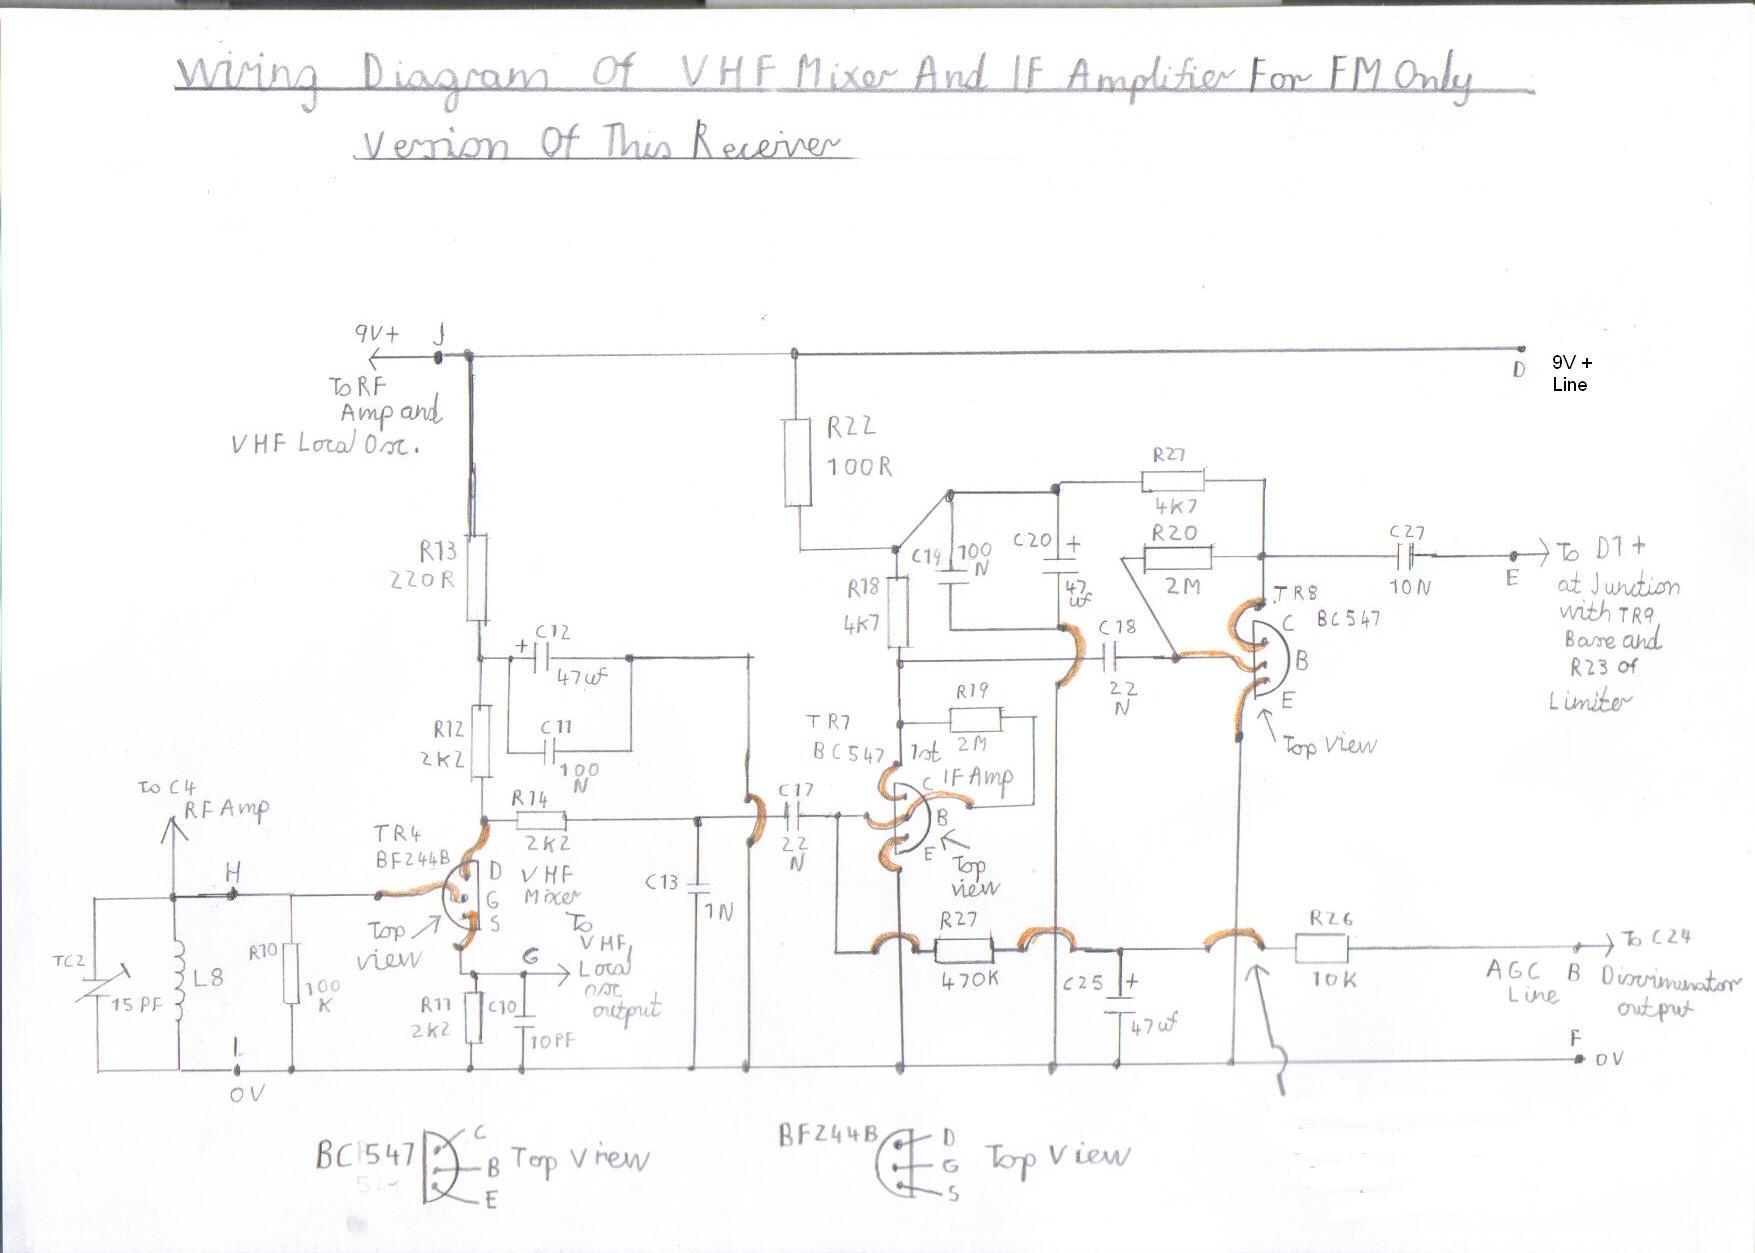 Wiring Diagram Of VHF Mixer And IF Amplifier For FM Only
Version Of This Receiver
9V+ J
To RF
Amp and
VHF Local Osc.
D
9V +
Line
R22
100R
R13
220R
C12
+
47uf
R12
2K2
C11
100
N
R27
4K7
R20
2M
C19
100
N
C20 +
47
uf
R18
4K7
C18
22
N
C27
10N
E
To D1+
at Junction
with TR9
Base and
R23 of
Limiter
TR8
BC547
C
B
E
Top View
R19
2M
TR7
BC547
1st
IF Amp
C
B
E
Top
view
C17
22
N
To C4
RF Amp
H
TR4
BF244B
R14
2K2
D
G
S
VHF
Mixer
Top
view
C13
1N
TC2
15PF
L8
R10
100
K
To
VHF
Local
osc
output
G
R11
2K2
C10
10PF
R27
470K
C25 +
47uf
R26
10K
AGC
Line
B
To C24
Discriminator
output
F
0V
L
0V
BC547
C
B
E
Top View
BF244B
D
G
S
Top View